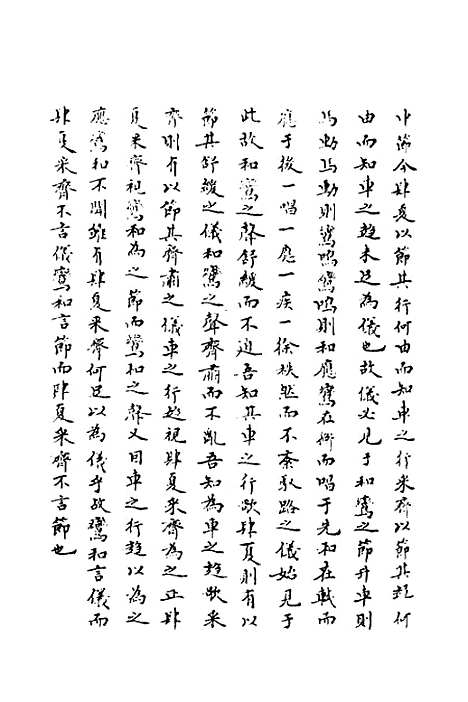 中節今肆夏以節其行何由而知車之行采齊以節其趍何
由而知車之趍未足為儀也故儀必見于和鸞之節升車則
馬動馬動則鸞鳴鸞鳴則和應鸞在衡而唱于先和在軾而
應于後一唱一應一疾一徐秩然而不紊馭路之儀始見于
此故和鸞之聲舒緩而不迫吾知其車之行歟肆夏則有以
節其舒緩之儀和鸞之聲齊肅而不亂吾知為車之趍歟采
齊則有以節其齊肅之儀車之行趍視肆夏采齊為之正肆
夏采齊視鸞和為之節而鸞和之聲又因車之行趍以為之
應鸞和不聞雖有肆夏采齊何足以為儀乎故鸞和言儀而
肆夏采齊不言儀鸞和言節而肆夏采齊不言節也